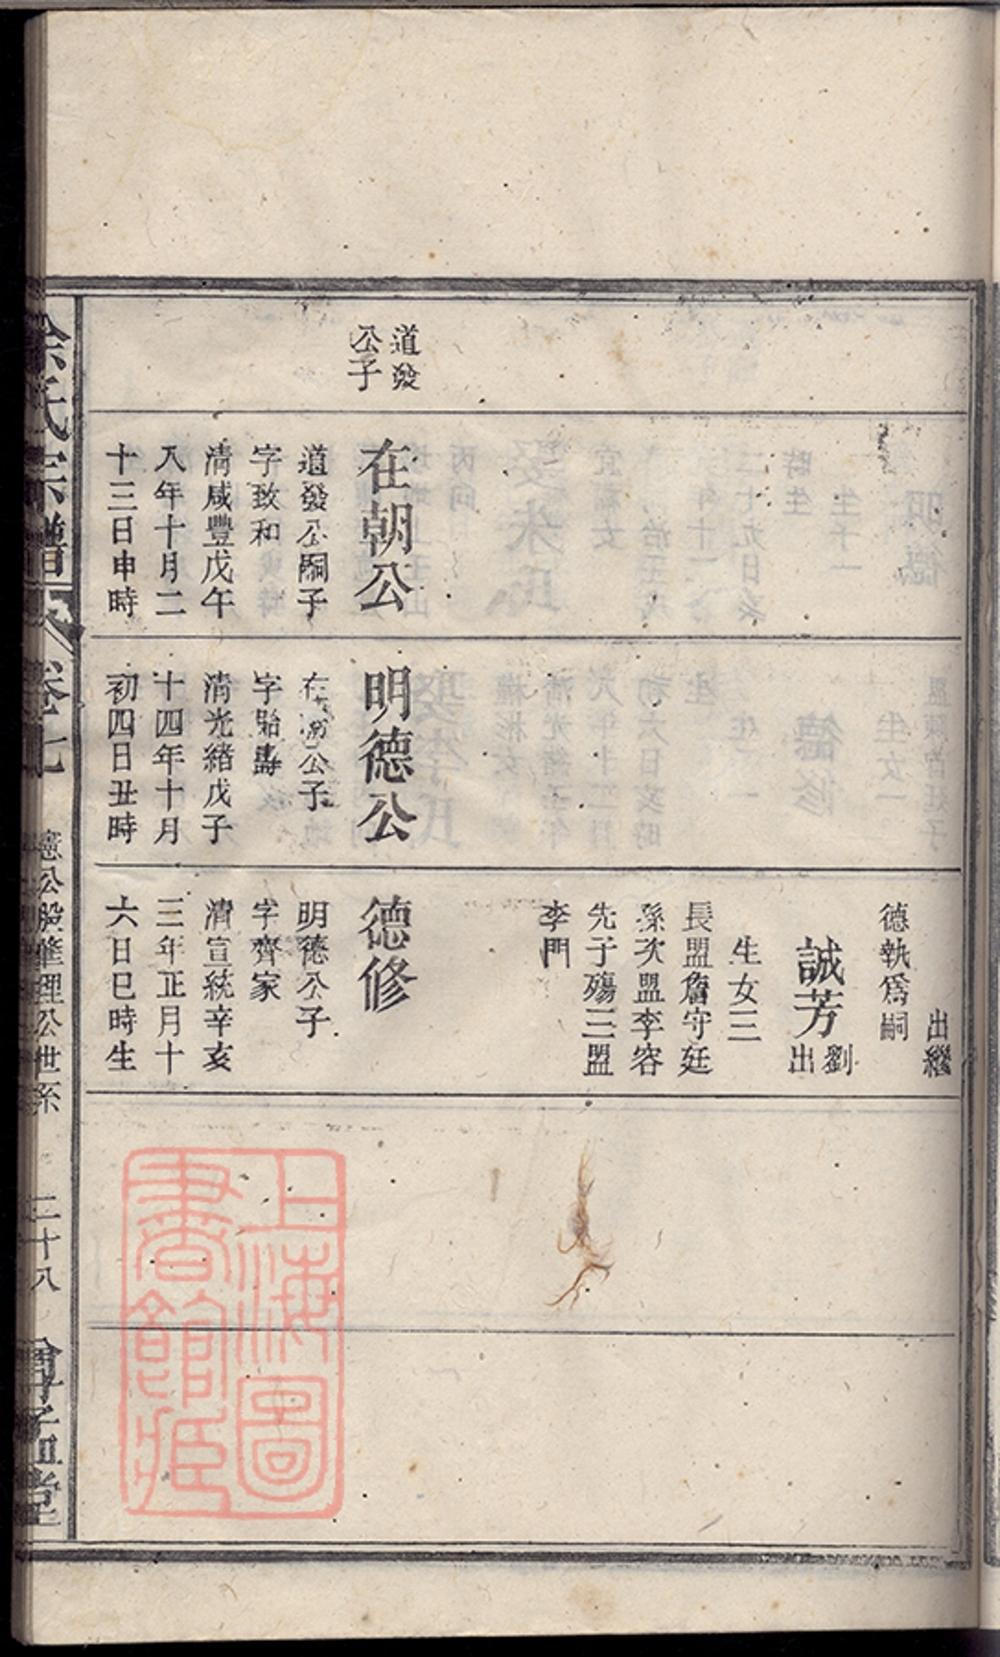 道發
公子
在朝公
道發公嗣子
字致和
清咸豐戊午
八年十月二
十三日申時
明德公
在朝公子
字貽壽
清光緒戊子
十四年十月
初四日丑時
出繼
德執爲嗣
誠芳
劉
出
生女三
長盟詹守廷
孫次盟李容
先子殤三盟
李門
德修
明德公子
字齊家
清宣統辛亥
三年正月十
六日巳時生
余氏宗譜
卷七
公股肇理公世系
二十八
堂
上海圖
書館藏